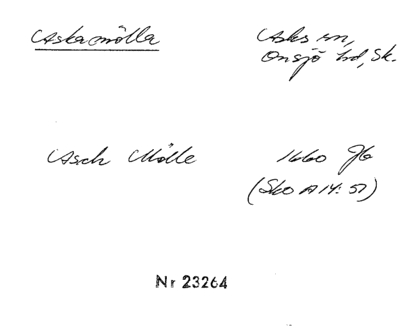 Askamölla
Asks sn,
Onsjö hd, Sk.
Asch Mölle
1660 Jb
(Sko A 14: 51)
Nr 23264